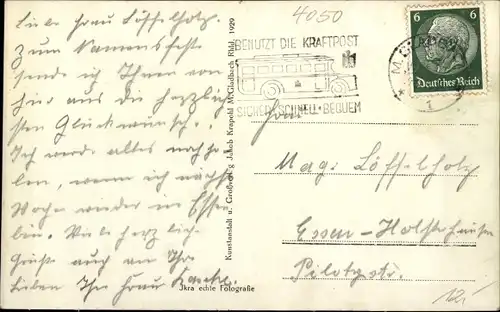 4050
Liebe Frau Löffelholz.
Zum Namensfeste
sende ich Ihnen von
hier aus die herzlich-
sten Glückwünsche.
Ich werde alles nachho-
len, wenn ich nächste
Woche wieder in Essen
bin. Viele herzliche
Grüße auch an Ihre
Lieben Ihre Frau
Kunstanstalt u. Großverlag Jakob Krapohl M.Gladbach Rhld. 1929
Jkra echte Fotografie
BENUTZT DIE KRAFTPOST
SICHER·SCHNELL·BEQUEM
6 6
Deutsches Reich
Frau
Mag. Löffelholz
Essen-Holsterhausen
Pilotystr.